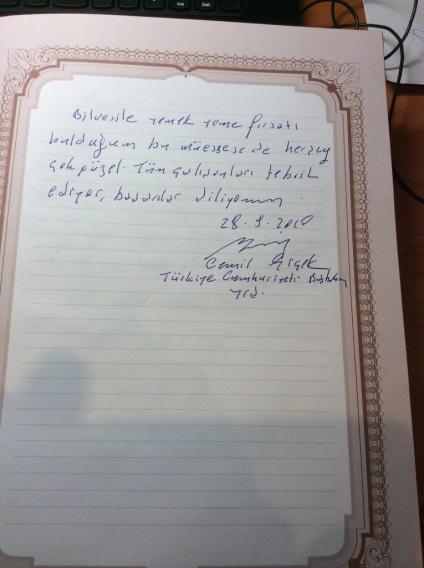 Bilvesile yemek yeme fırsatı
bulduğum bu müessesede herşey
çok güzel. Tüm çalışanları tebrik
ediyor, başarılar diliyorum.
28.9.2010
Cemil Çiçek
Türkiye Cumhuriyeti Başbakan
Yrd.